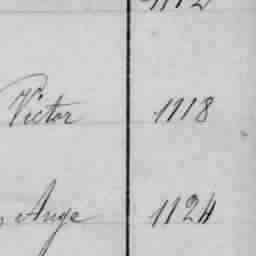 Victor 1118
Ange 1124